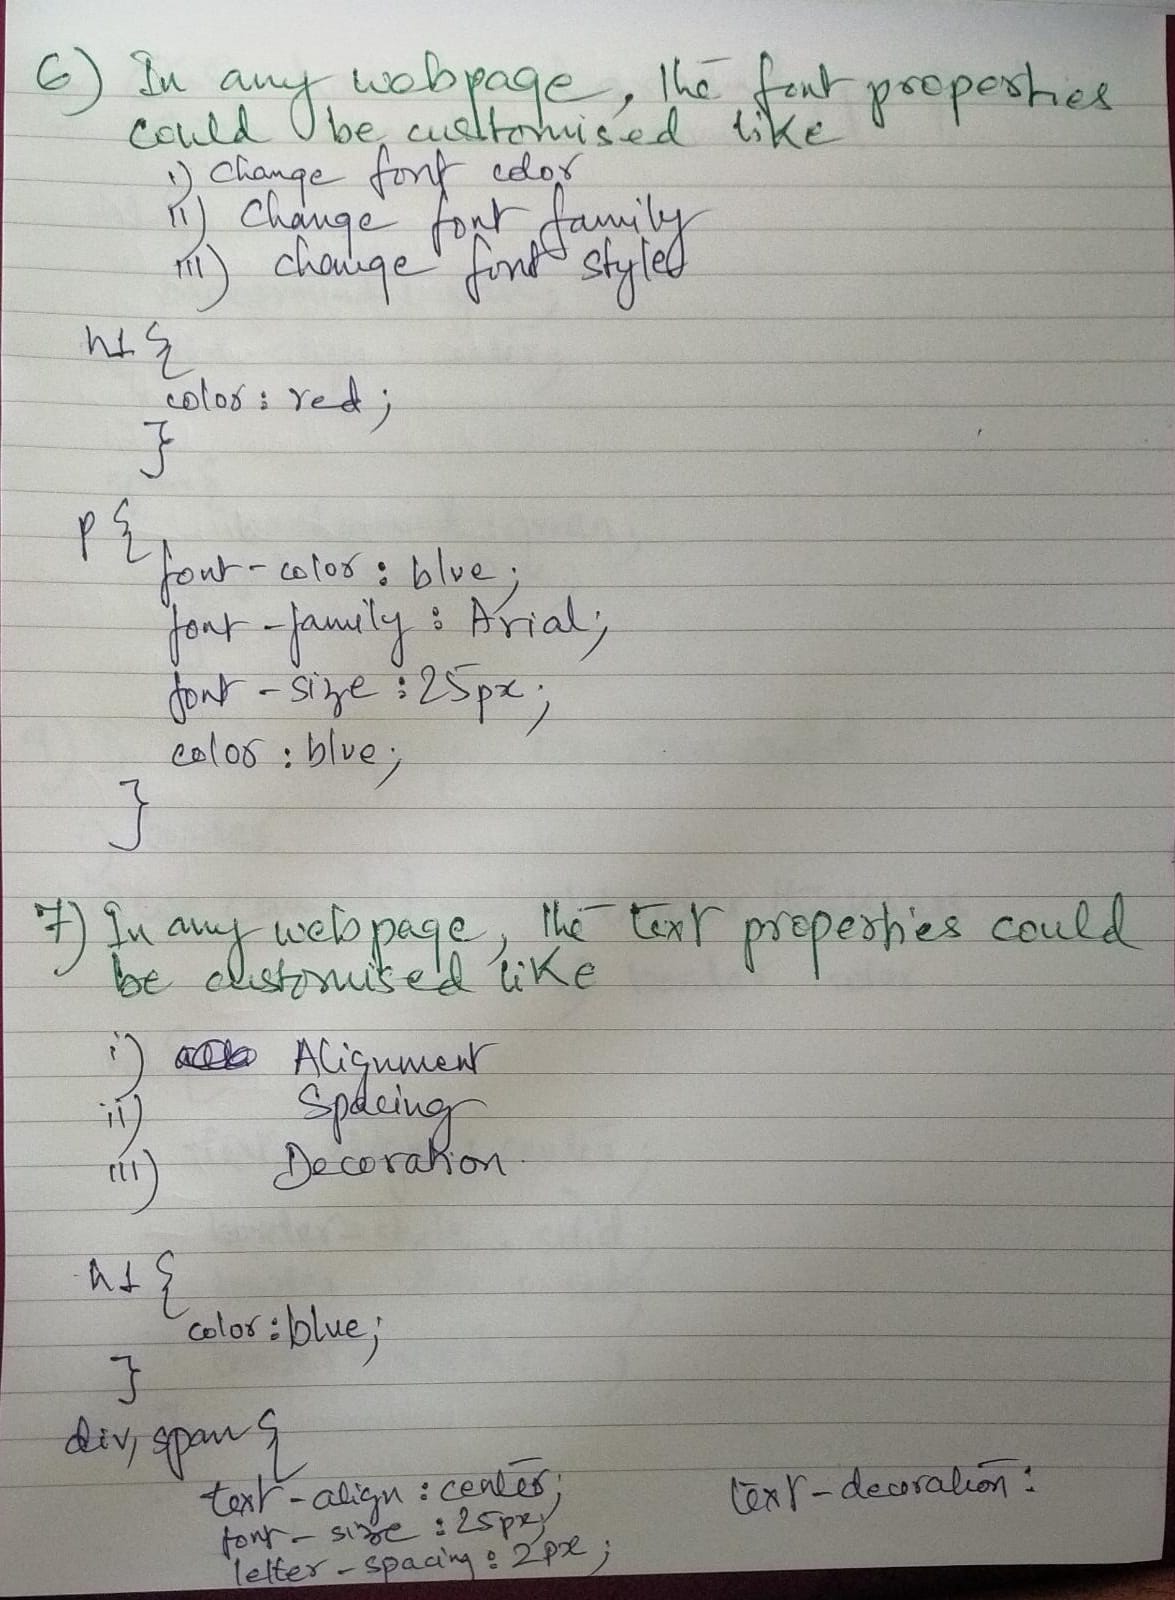 6) In any webpage, the font properties
could be customised like
i) Change font color
ii) Change font family
iii) change font styled
h1 {
color: red;
}
p {
font-color: blue;
font-family: Arial;
font-size: 25px;
color: blue;
}
7) In any webpage, the text properties could
be customised like
i) Alignment
ii) Spacing
iii) Decoration.
h1 {
color: blue;
}
div, span {
text-align: center; text-decoration:
font-size: 25px;
letter-spacing: 2px;